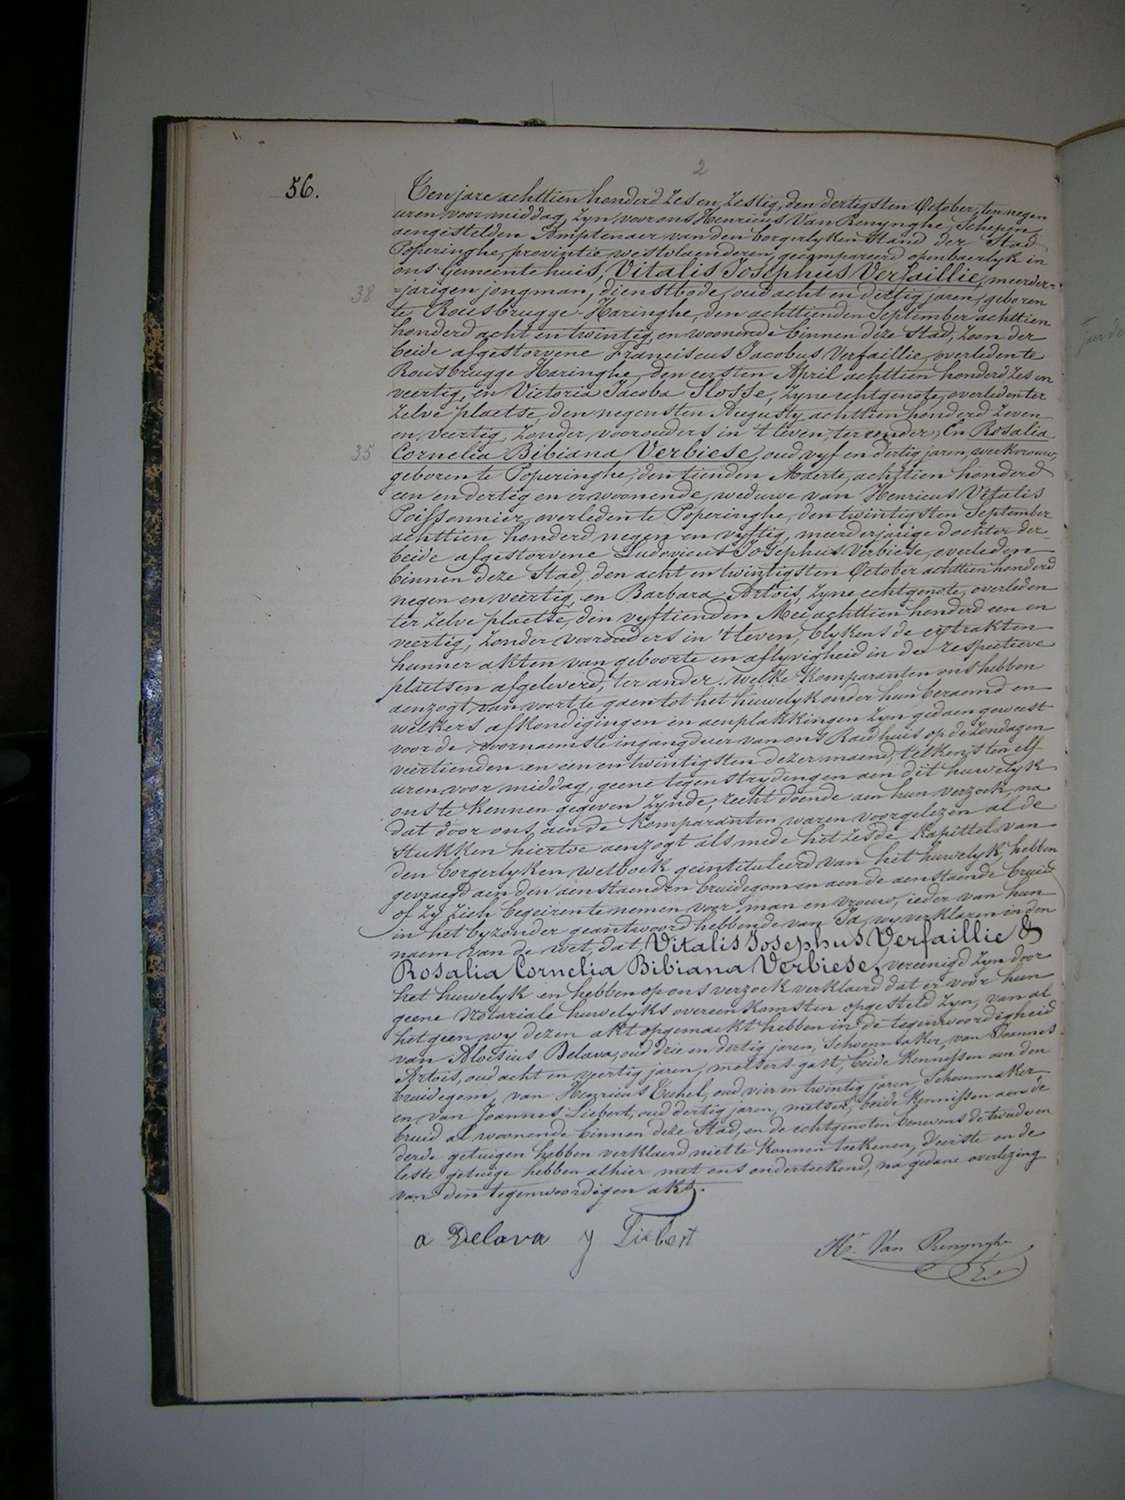 2
56.
Ten jare achttien honderd zes en zestig, den dertigsten October, ten negen
uren voor middag, zyn voor ons Henricus Van Renynghe, Schepen
aengestelden Amptenaer van den borgerlyken Stand der Stad
Poperinghe, provintie westvlaenderen, gecompareerd openbaerlyk in
ons Gemeentehuis, Vitalis Josephus Verfaillie, meerder=
38
=jarigen jongman, dienstbode, oud acht en dertig jaren, geboren
te Rousbrugge Haringhe, den achttienden September achttien
honderd acht en twintig, en woonende binnen deze Stad, zoon der
beide afgestorvene Franciscus Jacobus Verfaillie, overleden te
Rousbrugge Haringhe, den eersten April achttien honderd zes en
veertig, en Victoria Jacoba Slosse, zyne echtgenote, overleden ter
zelve plaetse, den negensten Augusty achttien honderd zeven
en veertig, zonder voorouders in 't leven, ter eender; En Rosalia
35
Cornelia Bibiana Verbiese, oud vyf en dertig jaren, werkvrouw,
geboren te Poperinghe, den tienden Maerte achttien honderd
een en dertig en er woonende, weduwe van Henricus Vitalis
Poissonnier, overleden te Poperinghe, den twintigsten September
achttien honderd negen en vyftig, meerderjarige dochter der
beide afgestorvene Ludovicus Josephus Verbiese, overleden
binnen deze Stad, den acht en twintigsten October achttien honderd
negen en veertig, en Barbara Artois, zyne echtgenote, overleden
ter zelve plaetse, den vyftienden Mei achttien honderd een en
veertig, zonder voorouders in 't leven, blykens de extrakten
hunner akten van geboorte en aflyvigheid in de respective
plaetsen afgeleverd, ter ander. welke komparanten ons hebben
aenzogt van voort te gaen tot het huwelyk onder hun beraemd en
welkers afkondigingen en aenplakkingen zyn gedaen geweest
voor de voornaemste ingangdeur van ons Raedhuis op de zondagen
veertienden en een en twintigsten dezer maend, telkens ten elf
uren voor middag, geene tegenstrydingen aen dit huwelyk
ons te kennen gegeven zynde, recht doende aen hun verzoek, na
dat door ons aen de komparanten waren voorgelezen al de
stukken hiertoe aenzogt als mede het zesde kapittel van
den borgerlyken wetboek geintituleerd van het huwelyk, hebben
gevraegd aen den aenstaenden bruidegom en aen de aenstaende bruid
of zy zich begeiren te nemen voor man en vrouw, ieder van hun
in het byzonder geantwoord hebbende van Ja, wy verklaren in den
naem van de wet, dat Vitalis Josephus Verfaillie &
Rosalia Cornelia Bibiana Verbiese, vereenigd zyn door
het huwelyk en hebben op ons verzoek verklaerd dat er voor hun
geene Notariale huwelyks overeenkomsten opgesteld zyn, van al
het geen wy dezen akt opgemaekt hebben in de tegenwoordigheid
van Aloisius Delava, oud drie en dertig jaren, Schoenmaker, van Joannes
Artois, oud acht en veertig jaren, metsers gast, beide kennissen aen den
bruidegom, van Henricus oud vier en twintig jaren, Schoenmaker
en van Joannes Liebert, oud dertig jaren, metser, beide kennissen aen de
bruid al woonende binnen deze Stad, en de echtgenoten benevens de tweede en
derde getuigen hebben verklaerd niet te konnen teekenen, d'eerste en de
leste getuige hebben alhier met ons onderteekend, na gedane overlezing
van den tegenwoordigen akt.
a Delava J Liebert
Hr. Van Renynghe